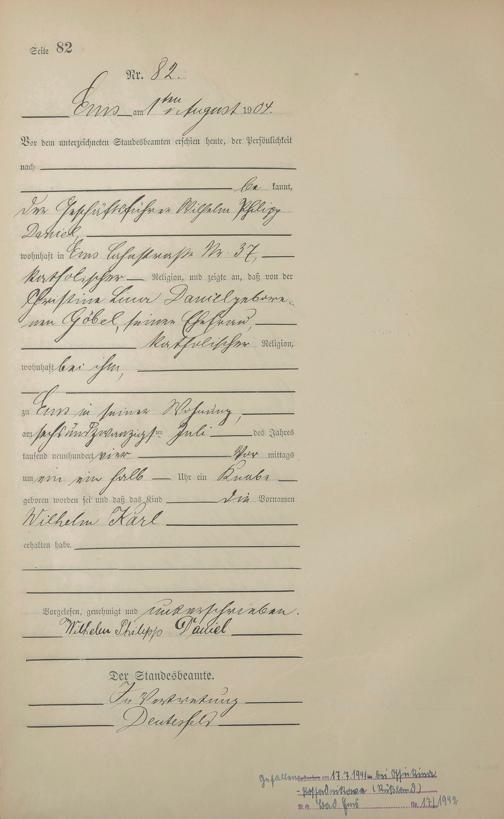 Seite 82
Nr. 82.
Ems am 1ten August 1904.
Vor dem unterzeichneten Standesbeamten erschien heute, der Persönlichkeit
nach
be kannt,
der Geschäftsführer Wilhelm Philipp
Daniel,
wohnhaft in Ems Lahnstraße Nr. 37,
katholischer Religion, und zeigte an, daß von der
Christine Daniel gebore-
nen Göbel, seiner Ehefrau,
katholischer Religion,
wohnhaft bei ihm,
zu Ems in seiner Wohnung,
am sechsundzwanzigsten Juli des Jahres
tausend neunhundert vier Vor mittags
um ein ein halb Uhr ein Knabe
geboren worden sei und daß das Kind die Vornamen
Wilhelm Karl
erhalten habe.
Vorgelesen, genehmigt und unterschrieben.
Wilhelm Philipp Daniel
Der Standesbeamte.
In Vertretung
Gefallen am 17.7.1941 bei
(Rußland)
Bad Ems 17/1942